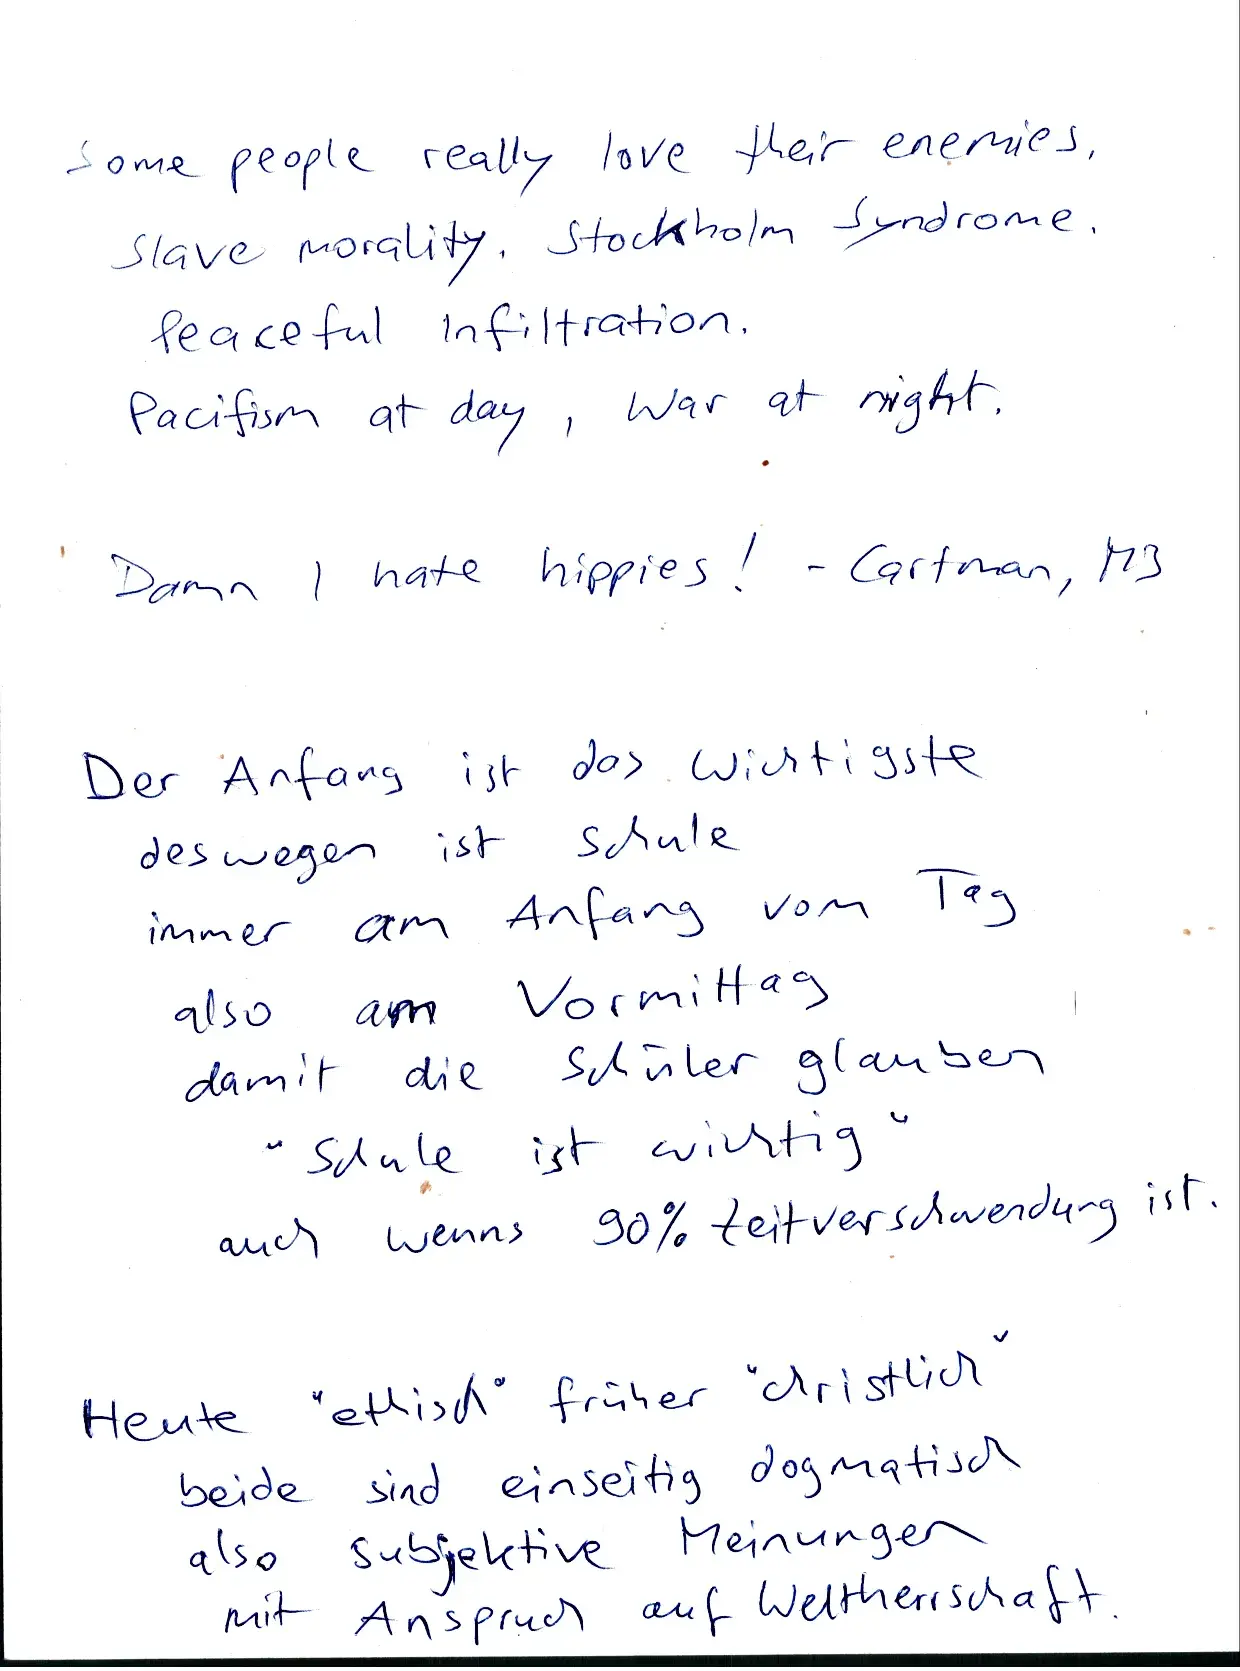 Some people really love their enemies.
Slave morality. Stockholm Syndrome.
Peaceful Infiltration.
Pacifism at day, war at night.
Damn I hate hippies! - Cartman, MB
Der Anfang ist das wichtigste
deswegen ist Schule
immer am Anfang vom Tag
also am Vormittag
damit die Schüler glauben
"Schule ist wichtig"
auch wenns 90% Zeitverschwendung ist.
Heute "ethisch" früher "christlich"
beide sind einseitig dogmatisch
also subjektive Meinungen
mit Anspruch auf Weltherrschaft.